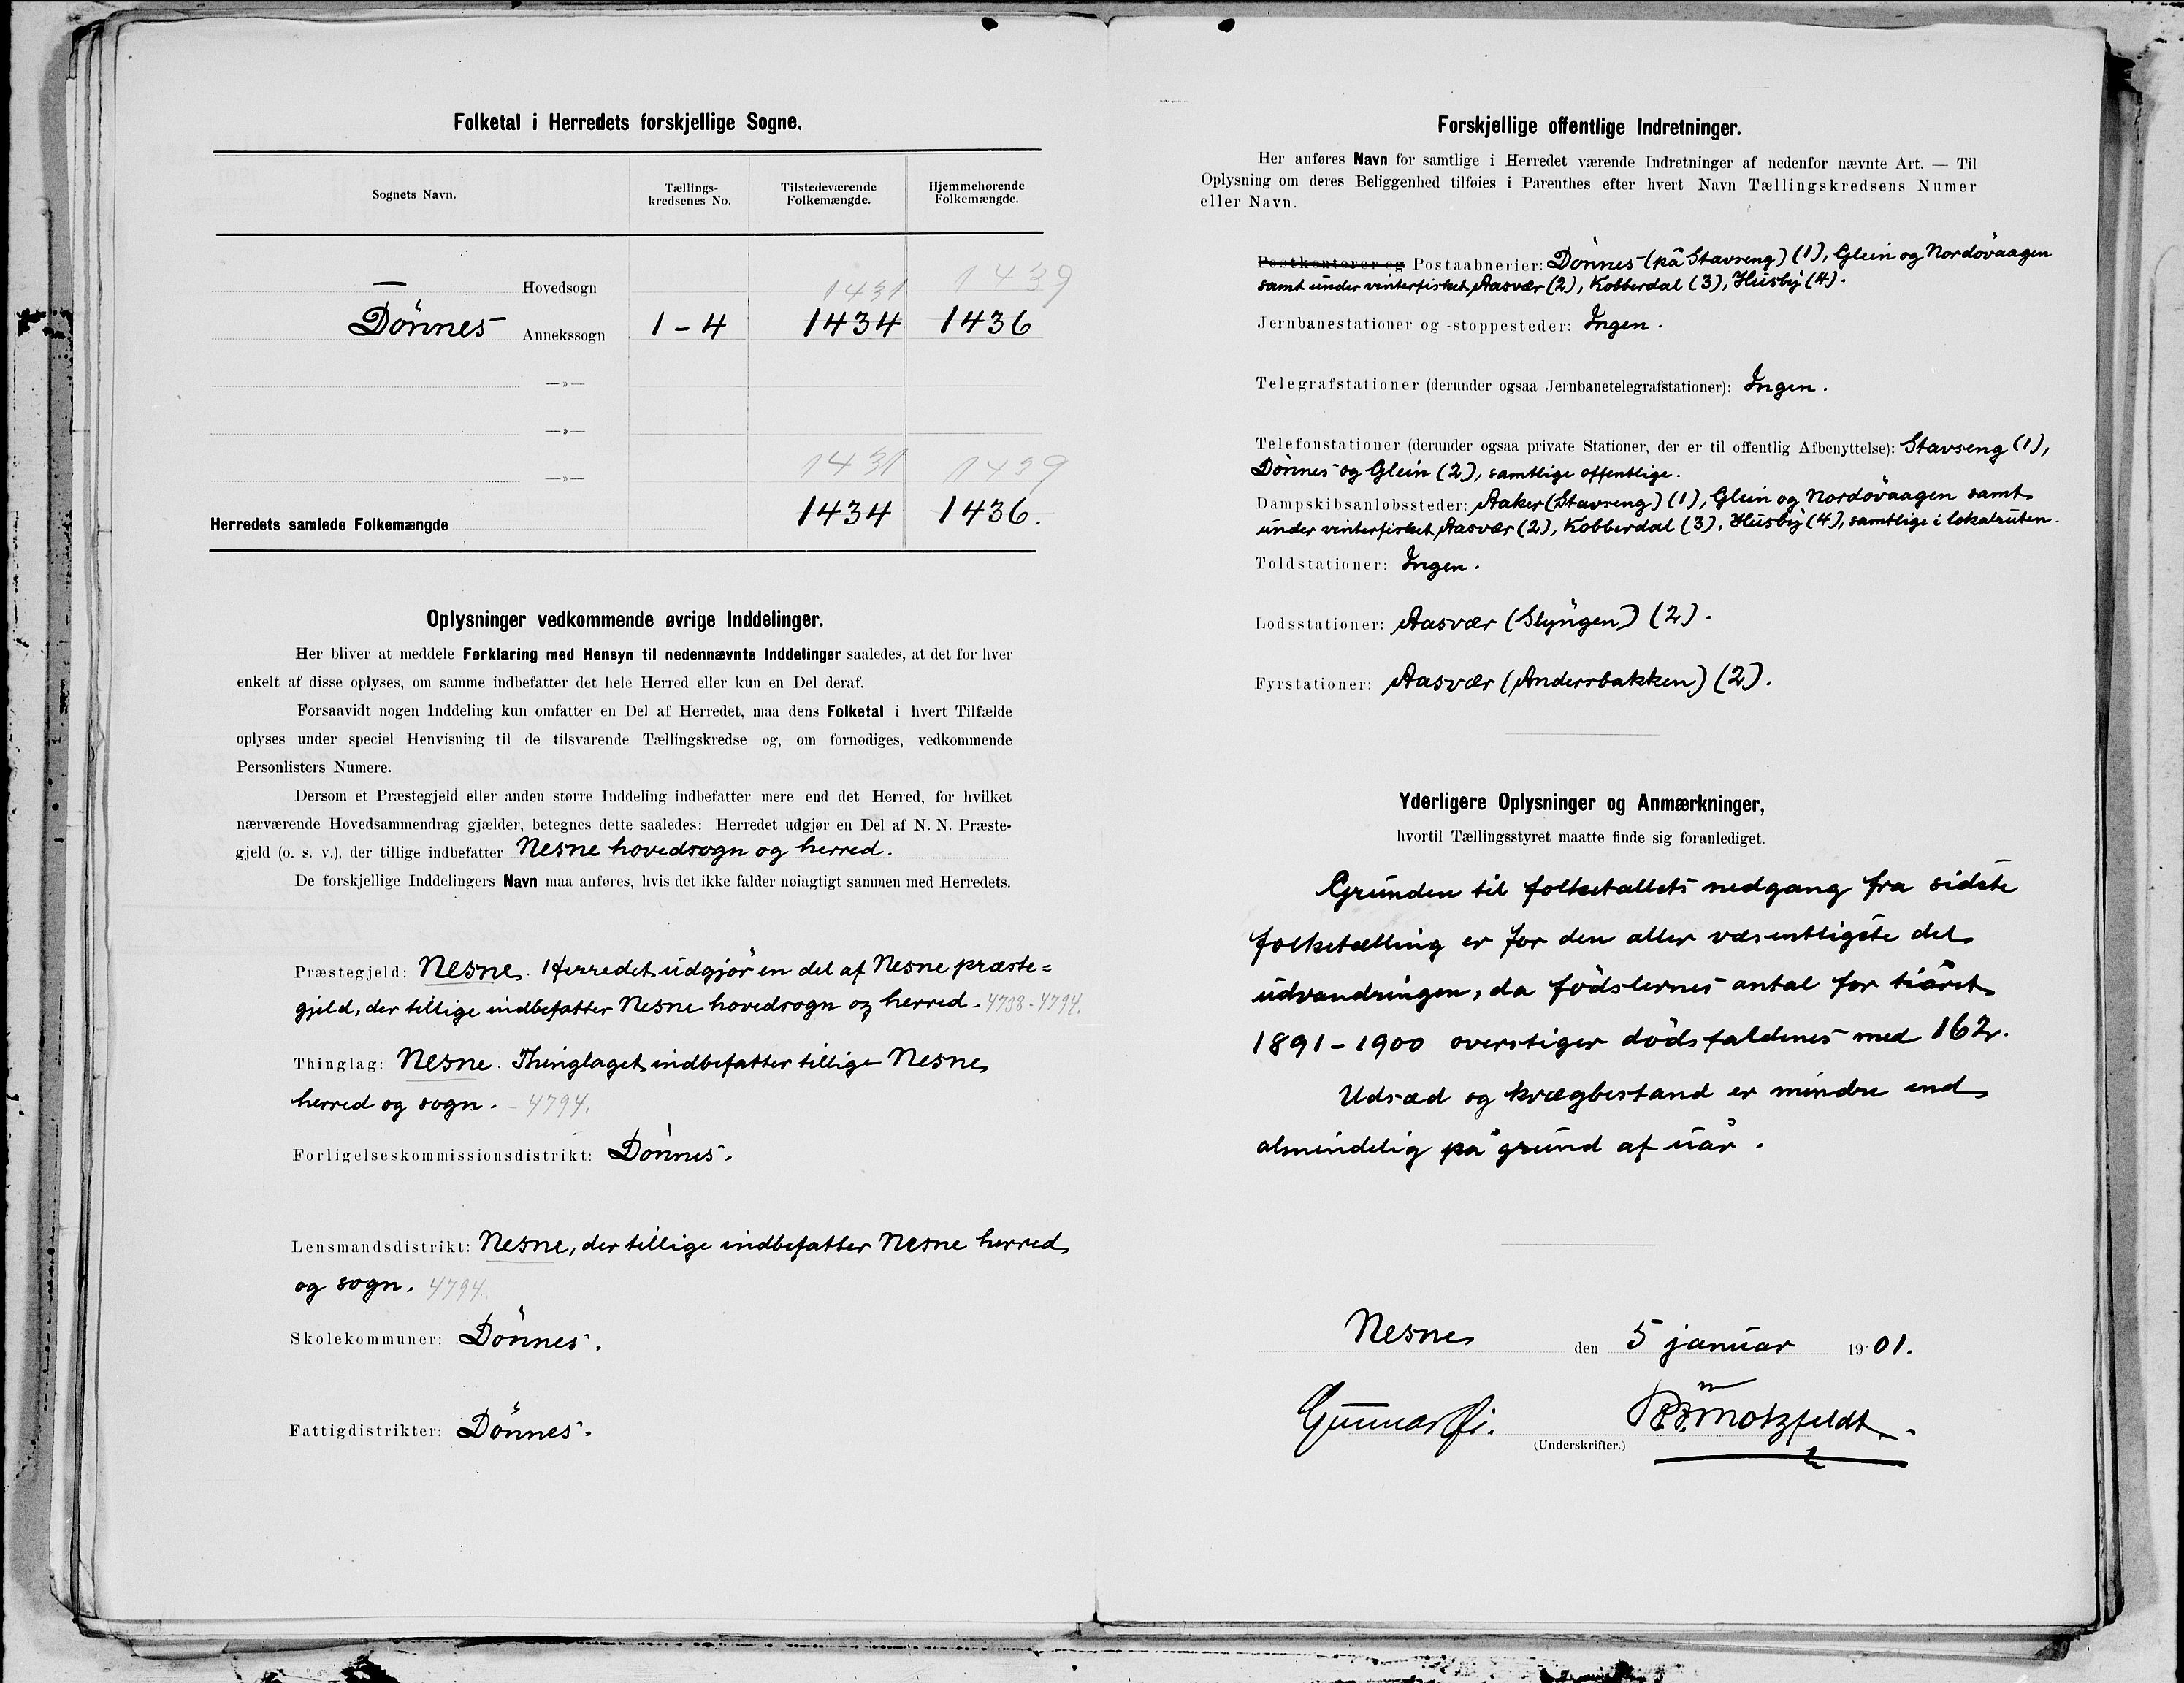 Folketal i Herredets forskjellige Sogne.
Sognets Navn.
Tællings-
kredsenes No.
Tilstedeværende
Folkemængde.
Hjemmehørende
Folkemængde.
— Hovedsogn 1431 1439
Dönnes Annekssogn 1-4 1434 1436
—»—
—»—
—»— 1431 1439
Herredets samlede Folkemængde 1434 1436.
Oplysninger vedkommende øvrige Inddelinger.
Her bliver at meddele Forklaring med Hensyn til nedennævnte Inddelinger saaledes, at det for hver
enkelt af disse oplyses, om samme indbefatter det hele Herred eller kun en Del deraf.
Forsaavidt nogen Inddeling kun omfatter en Del af Herredet, maa dens Folketal i hvert Tilfælde
oplyses under speciel Henvisning til de tilsvarende Tællingskredse og, om fornødiges, vedkommende
Personlisters Numere.
Dersom et Præstegjeld eller anden større Inddeling indbefatter mere end det Herred, for hvilket
nærværende Hovedsammendrag gjælder, betegnes dette saaledes: Herredet udgjør en Del af N. N. Præste-
gjeld (o. s. v.), der tillige indbefatter Nesne hovedsogn og herred.
De forskjellige Inddelingers Navn maa anføres, hvis det ikke falder nøiagtigt sammen med Herredets.
Præstegjeld: Nesne. Herredet udgjör en del af Nesne præste=
gjeld, der tillige indbefatter Nesne hovedsogn og herred. 4798-4794.
Thinglag: Nesne. Thinglaget indbefatter tillige Nesne
herred og sogn. - 4794.
Forligelseskommissionsdistrikt: Dönnes.
Lensmandsdistrikt: Nesne, der tillige indbefatter Nesne herred
og sogn. 4794.
Skolekommuner: Dönnes.
Fattigdistrikter: Dönnes.
Forskjellige offentlige Indretninger.
Her anføres Navn for samtlige i Herredet værende Indretninger af nedenfor nævnte Art. — Til
Oplysning om deres Beliggenhed tilføies i Parenthes efter hvert Navn Tællingskredsens Numer
eller Navn.
Postkontorer og Postaabnerier: Dönnes (på Stavseng) (1), Glein og Nordövaagen
samt under vinterfisket Aasvær (2), Kobberdal (3), Husby (4).
Jernbanestationer og -stoppesteder: Ingen.
Telegrafstationer (derunder ogsaa Jernbanetelegrafstationer): Ingen.
Telefonstationer (derunder ogsaa private Stationer, der er til offentlig Afbenyttelse): Stavseng (1),
Dönnes og Glein (2), samtlige offentlige.
Dampskibsanløbssteder: Aaker (Stavseng) (1), Glein og Nordövaagen samt
under vinterfisket Aasvær (2), Kobberdal (3), Husby (4), samtlige i lokalruten.
Toldstationer: Ingen.
Lodsstationer: Aasvær (Slyngen) (2).
Fyrstationer: Aasvær (Andersbakken) (2).
Yderligere Oplysninger og Anmærkninger,
hvortil Tællingsstyret maatte finde sig foranlediget.
Grunden til folketallets nedgang fra sidste
folketælling er for den aller væsentligste del
udvandringen, da födslernes antal for tiåret
1891-1900 overstiger dödsfaldenes med 162.
Udsæd og kvægbestand er mindre end
almindelig på grund af uår.
Nesne den 5 januar 1901.
Gunnar Øi. Motzfeldt.
(Underskrifter.)